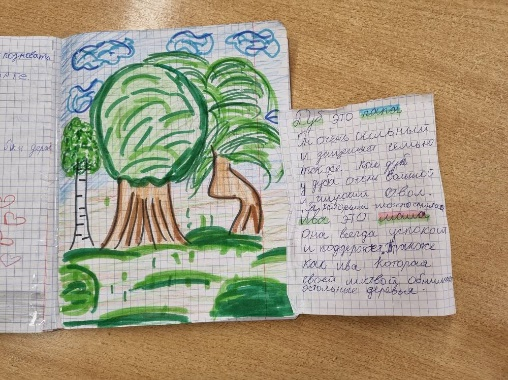 познавать
Дуб это папа
и очень сильный
и защищает семью
также. Как дуб
у дуба очень большой
и широкий ствол.
Ива это мама
Она всегда успокоит
и поддержет также
как ива которая
своей листвой обнимает
остальные деревья.